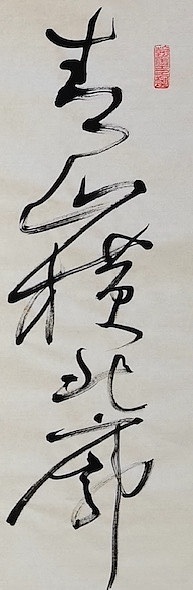 青山橫北郭